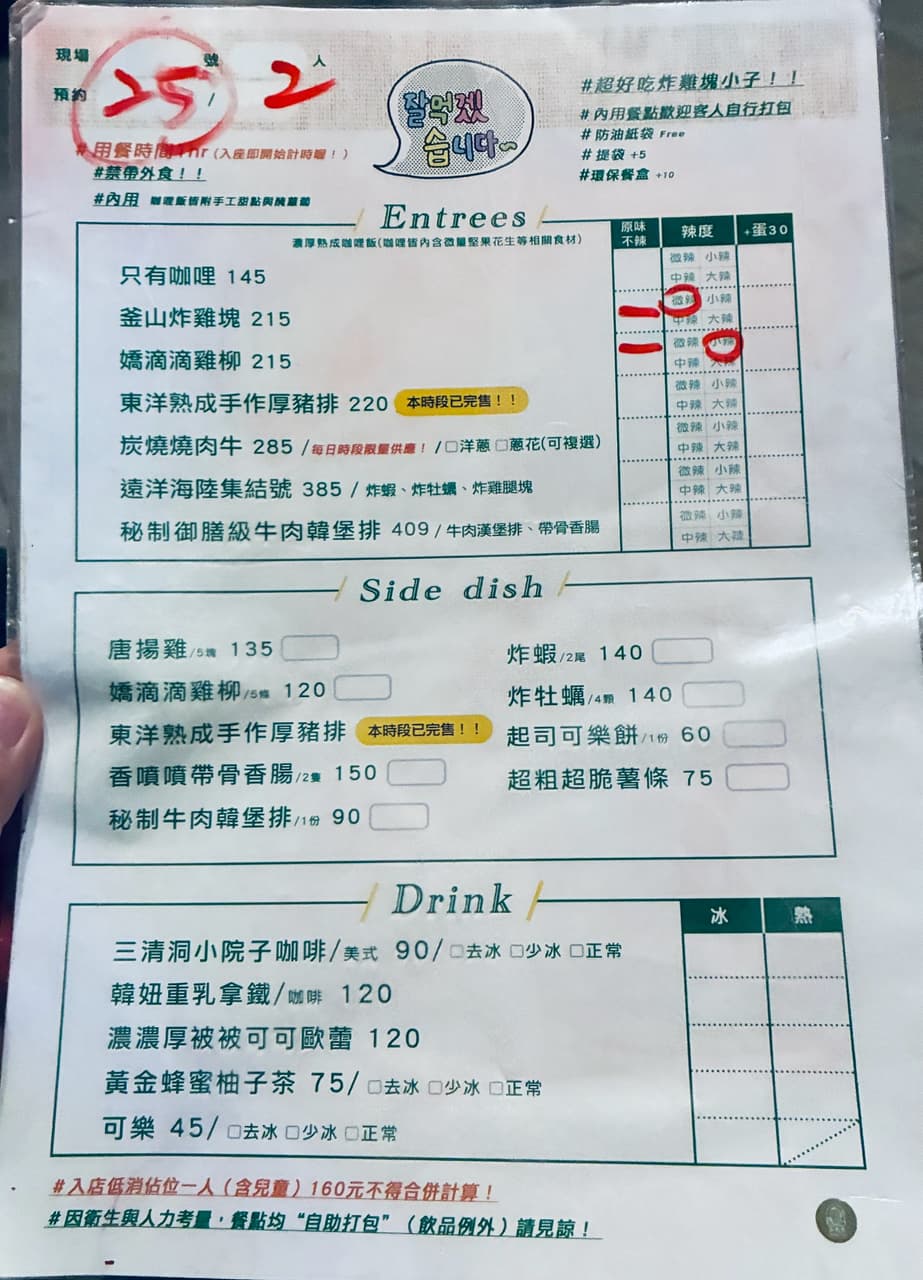 現場 25 號 2 人
預約 /
잘먹겠
습니다~
#超好吃炸雞塊小子!!
#內用餐點歡迎客人自行打包
# 防油紙袋 Free
# 提袋 +5
#環保餐盒 +10
# 用餐時間1hr (入座即開始計時喔!)
#禁帶外食!!
#內用 咖哩飯皆附手工甜點與醃蘿蔔
Entrees
濃厚熟成咖哩飯(咖哩皆內含微量堅果花生等相關食材)
原味不辣 辣度 +蛋30
只有咖哩 145 微辣 小辣 中辣 大辣
釜山炸雞塊 215 微辣 小辣 中辣 大辣
嬌滴滴雞柳 215 微辣 小辣 中辣 大辣
東洋熟成手作厚豬排 220 本時段已完售!! 微辣 小辣 中辣 大辣
炭燒燒肉牛 285 /每日時段限量供應! / □洋蔥 □蔥花(可複選) 微辣 小辣 中辣 大辣
遠洋海陸集結號 385 / 炸蝦、炸牡蠣、炸雞腿塊 微辣 小辣 中辣 大辣
秘制御膳級牛肉韓堡排 409 / 牛肉漢堡排、帶骨香腸 微辣 小辣 中辣 大辣
Side dish
唐揚雞/5塊 135
嬌滴滴雞柳/5條 120
東洋熟成手作厚豬排 本時段已完售!!
香噴噴帶骨香腸/2隻 150
秘制牛肉韓堡排/1份 90
炸蝦/2尾 140
炸牡蠣/4顆 140
起司可樂餅/1份 60
超粗超脆薯條 75
Drink
冰 熱
三清洞小院子咖啡/美式 90/ □去冰 □少冰 □正常
韓妞重乳拿鐵/咖啡 120
濃濃厚被被可可歐蕾 120
黃金蜂蜜柚子茶 75/ □去冰 □少冰 □正常
可樂 45/ □去冰 □少冰 □正常
#入店低消佔位一人(含兒童)160元不得合併計算!
#因衛生與人力考量,餐點均“自助打包”(飲品例外)請見諒!